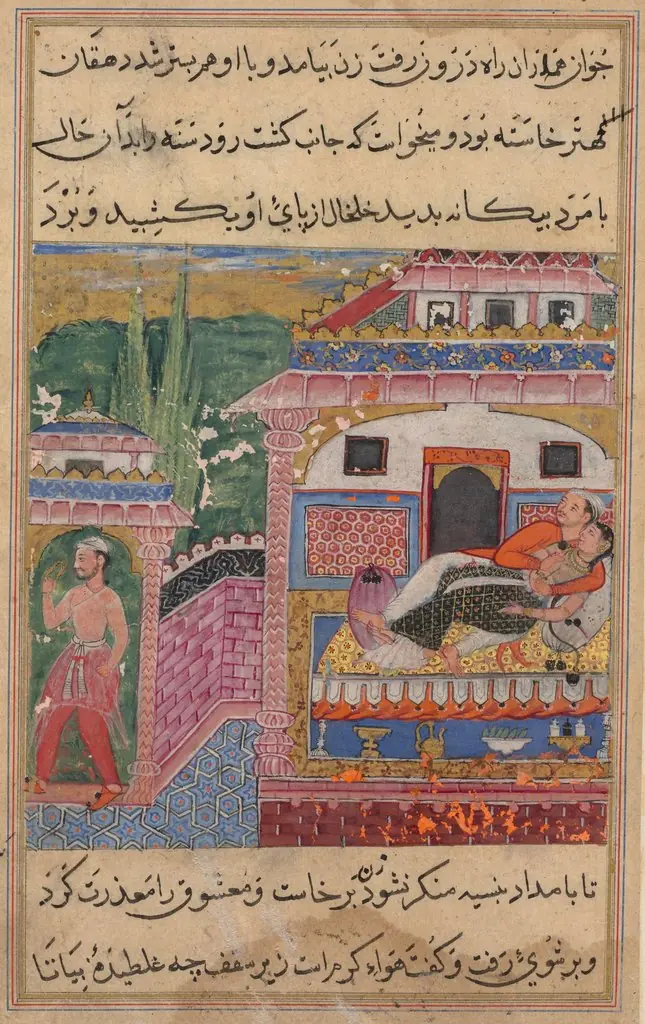 جوان هم از ان راه درون رفت زن بیامد و با او هم بستر شد دهقان
مهتر خاسته بود و میخواست که جانب کشت رود سنه را بدان حال
با مرد بیکانه بدید خلخال از پائ او بکشید و برد
تا بامداد بنسیه منکر نشود زن بر خاست و معشوق را معذرت کرد
و بر شوئ رفت و کفت هواء کرم است زیر سقف چه غلطیدهٔ بیا تا